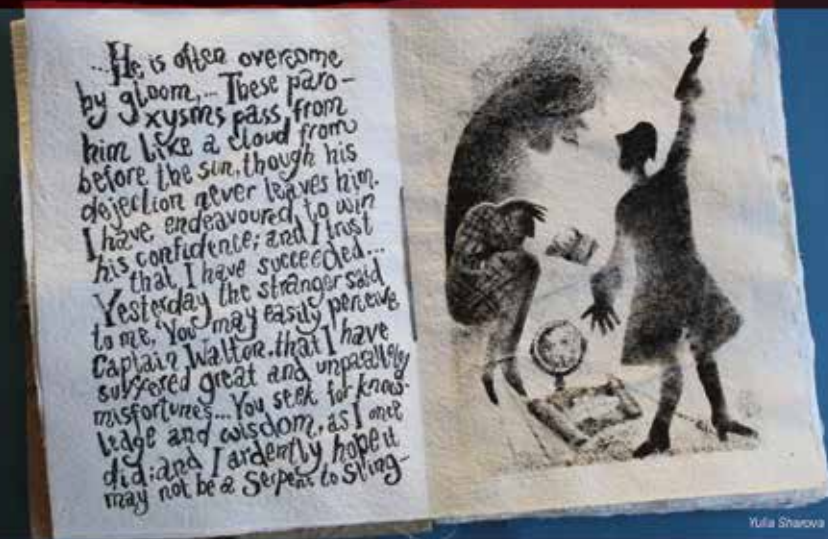 ...He is often overcome
by gloom,... These paro-
xysms pass from
him like a cloud from
before the sun, though his
dejection never leaves him.
I have endeavoured to win
his confidence; and I trust
that I have succeeded...
Yesterday the stranger said
to me, "You may easily perceive
Captain Walton, that I have
suffered great and unparalleled
misfortunes... You seek for know-
ledge and wisdom, as I once
did; and I ardently hope it
may not be a Serpent to sting-
Yulia Sharova